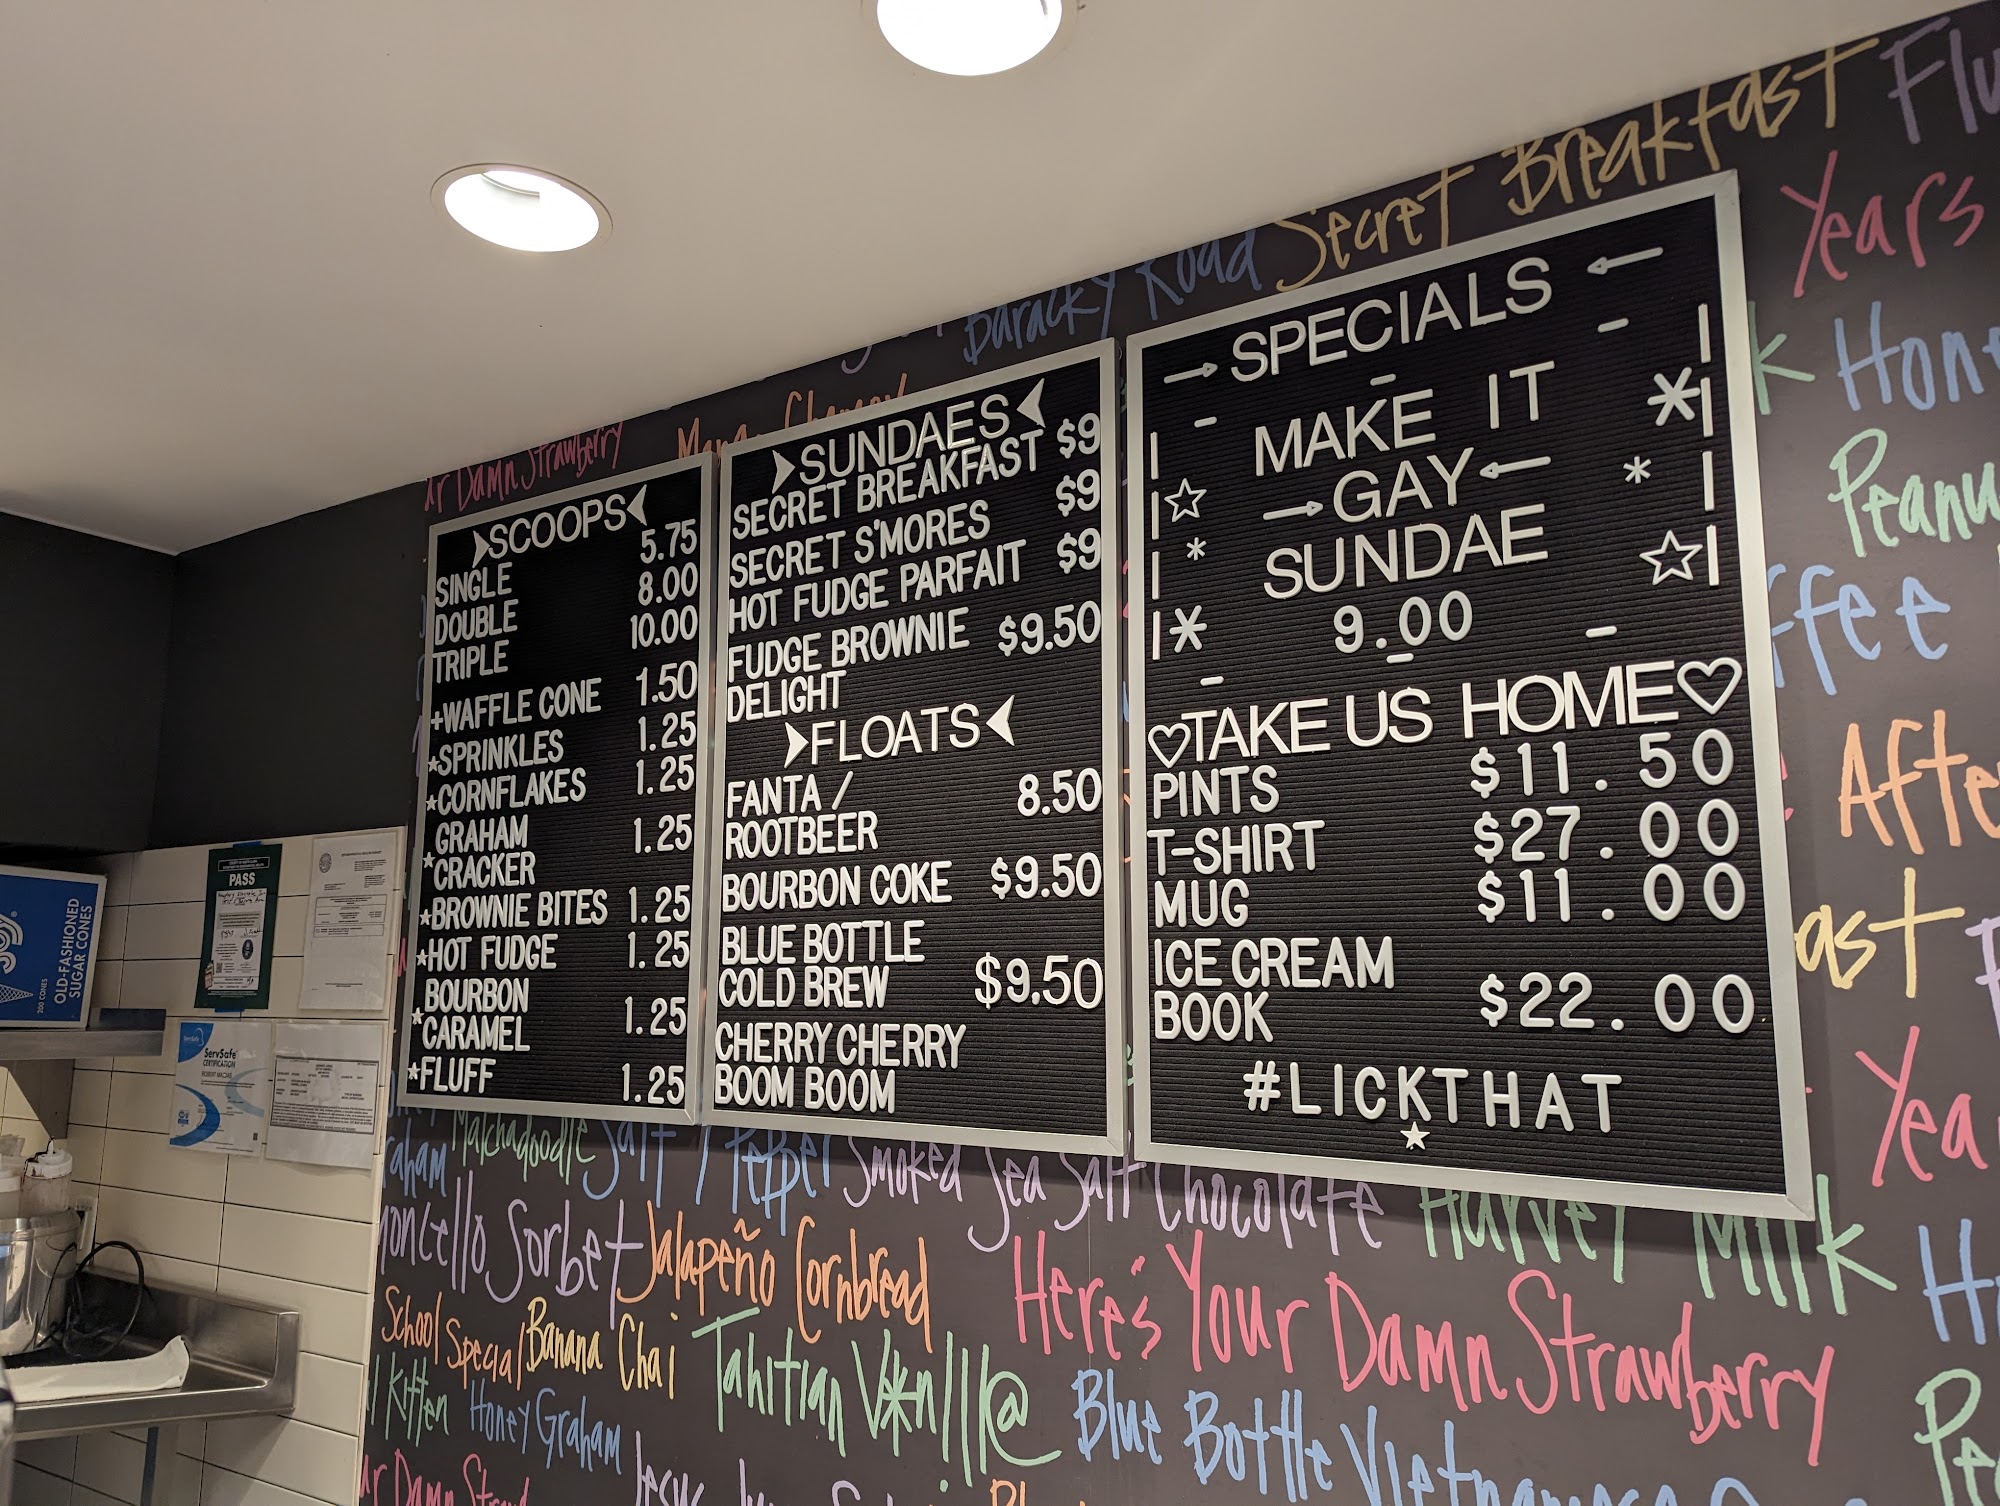 Breakfast
Secret
Baracky Road
Years
Damn Strawberry
SCOOPS
SINGLE 5.75
DOUBLE 8.00
TRIPLE 10.00
+WAFFLE CONE 1.50
★SPRINKLES 1.25
★CORNFLAKES 1.25
★GRAHAM
CRACKER 1.25
★BROWNIE BITES 1.25
★HOT FUDGE 1.25
★BOURBON
CARAMEL 1.25
★FLUFF 1.25
SUNDAES
SECRET BREAKFAST $9
SECRET S'MORES $9
HOT FUDGE PARFAIT $9
FUDGE BROWNIE $9.50
DELIGHT
FLOATS
FANTA / 8.50
ROOTBEER
BOURBON COKE $9.50
BLUE BOTTLE
COLD BREW $9.50
CHERRY CHERRY
BOOM BOOM
→ SPECIALS ←
MAKE IT
→ GAY ←
SUNDAE
9.00
♡TAKE US HOME♡
PINTS $11.50
T-SHIRT $27.00
MUG $11.00
ICE CREAM
BOOK $22.00
#LICKTHAT
PASS
OLD-FASHIONED
SUGAR CONES
200 CONES
ServSafe
CERTIFICATION
Matchadoodle
Salt / Pepper
Smoked Sea Salt Chocolate
Harvey Milk
Sorbet
Jalapeño Cornbread
Here's Your Damn Strawberry
School Special
Banana Chai
Tahitian V*n!ll@
Kitten
Honey Graham
Blue Bottle Vietnamese
Damn
Jesus